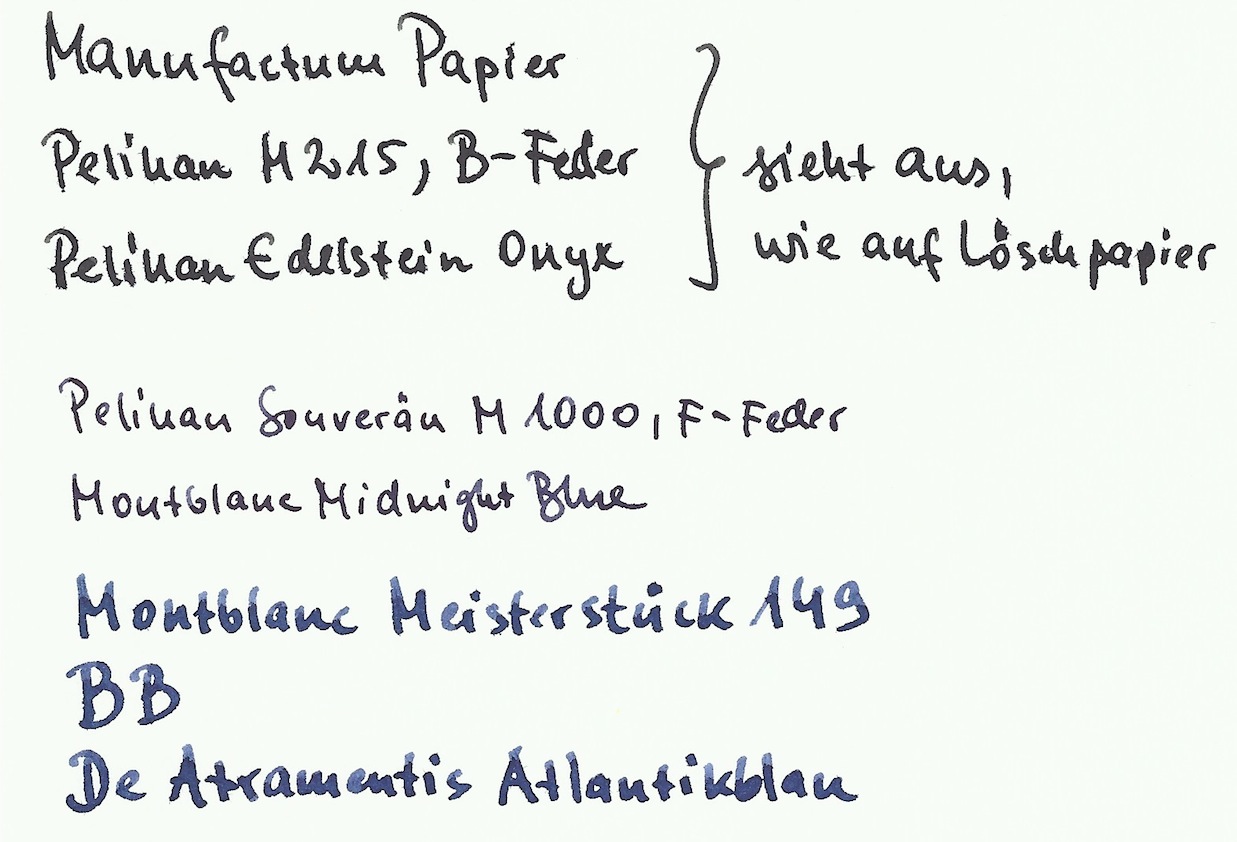 Manufactum Papier
Pelikan M215, B-Feder
Pelikan Edelstein Onyx
sieht aus,
wie auf Löschpapier
Pelikan Souverän M 1000, F-Feder
Montblanc Midnight Blue
Montblanc Meisterstück 149
BB
De Atramentis Atlantikblau